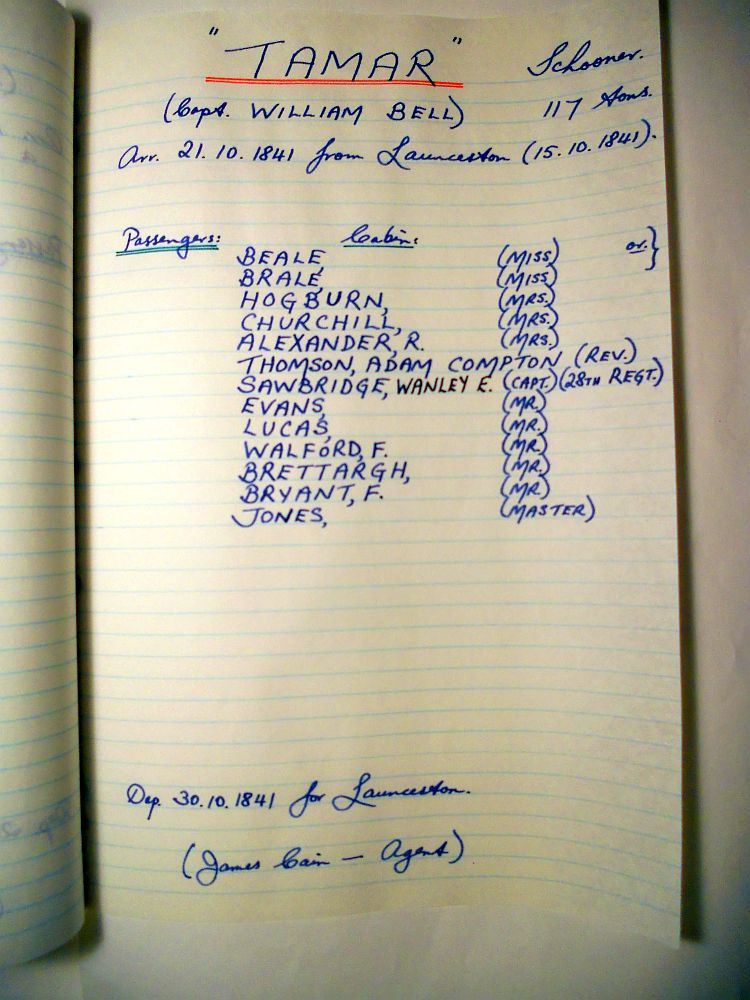 "TAMAR" Schooner.
(Capt. WILLIAM BELL) 117 tons.
Arr. 21.10.1841 from Launceston (15.10.1841).
Passengers: Cabin:
BEALE, (MISS) or }
BRALE, (MISS)
HOGBURN, (MRS.)
CHURCHILL, (MRS.)
ALEXANDER, R. (MRS.)
THOMSON, ADAM COMPTON (REV.)
SAWBRIDGE, WANLEY E. (CAPT.) (28TH REGT.)
EVANS, (MR.)
LUCAS, (MR.)
WALFORD, F. (MR.)
BRETTARGH, (MR.)
BRYANT, F. (MR.)
JONES, (MASTER)
Dep. 30.10.1841 for Launceston.
(James Cain — Agent)